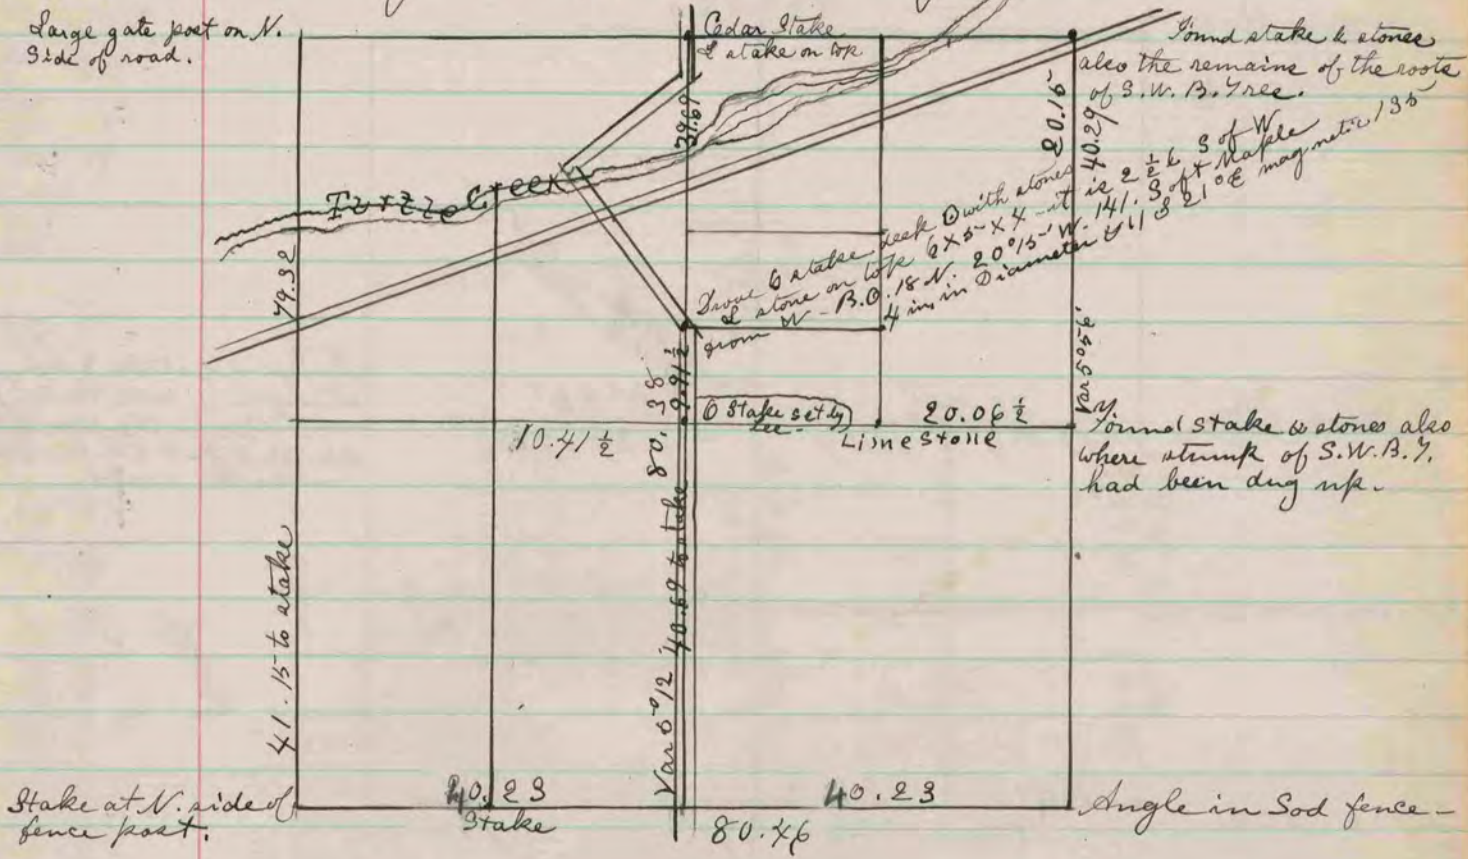 Large gate post on N.
Side of road.
Cedar Stake
& stake on top
Found stake & stones
also the remains of the roots
of S.W. B. Tree.
39.69
20.15
40.29
Turtle Creek
79.32
Drove stake with stones
& stone on top 6 X 5 X 4 - it is 2 ½ S of W
from W - B.O. 18 N. 20°15' W. 141. Soft Maple
4 in in Diameter S 21°E magnetic
Var 5°05'
9.91 ½
80.38
Stake set by
Lee -
20.06 ½
Limestone
10.41 ½
Found stake & stones also
where stump of S.W.B.T.
had been dug up.
41.15 to stake
Var 5°12' 40.69 to stake
Stake at N. side of
fence post.
40.23
Stake
40.23
80.46
Angle in Sod fence -